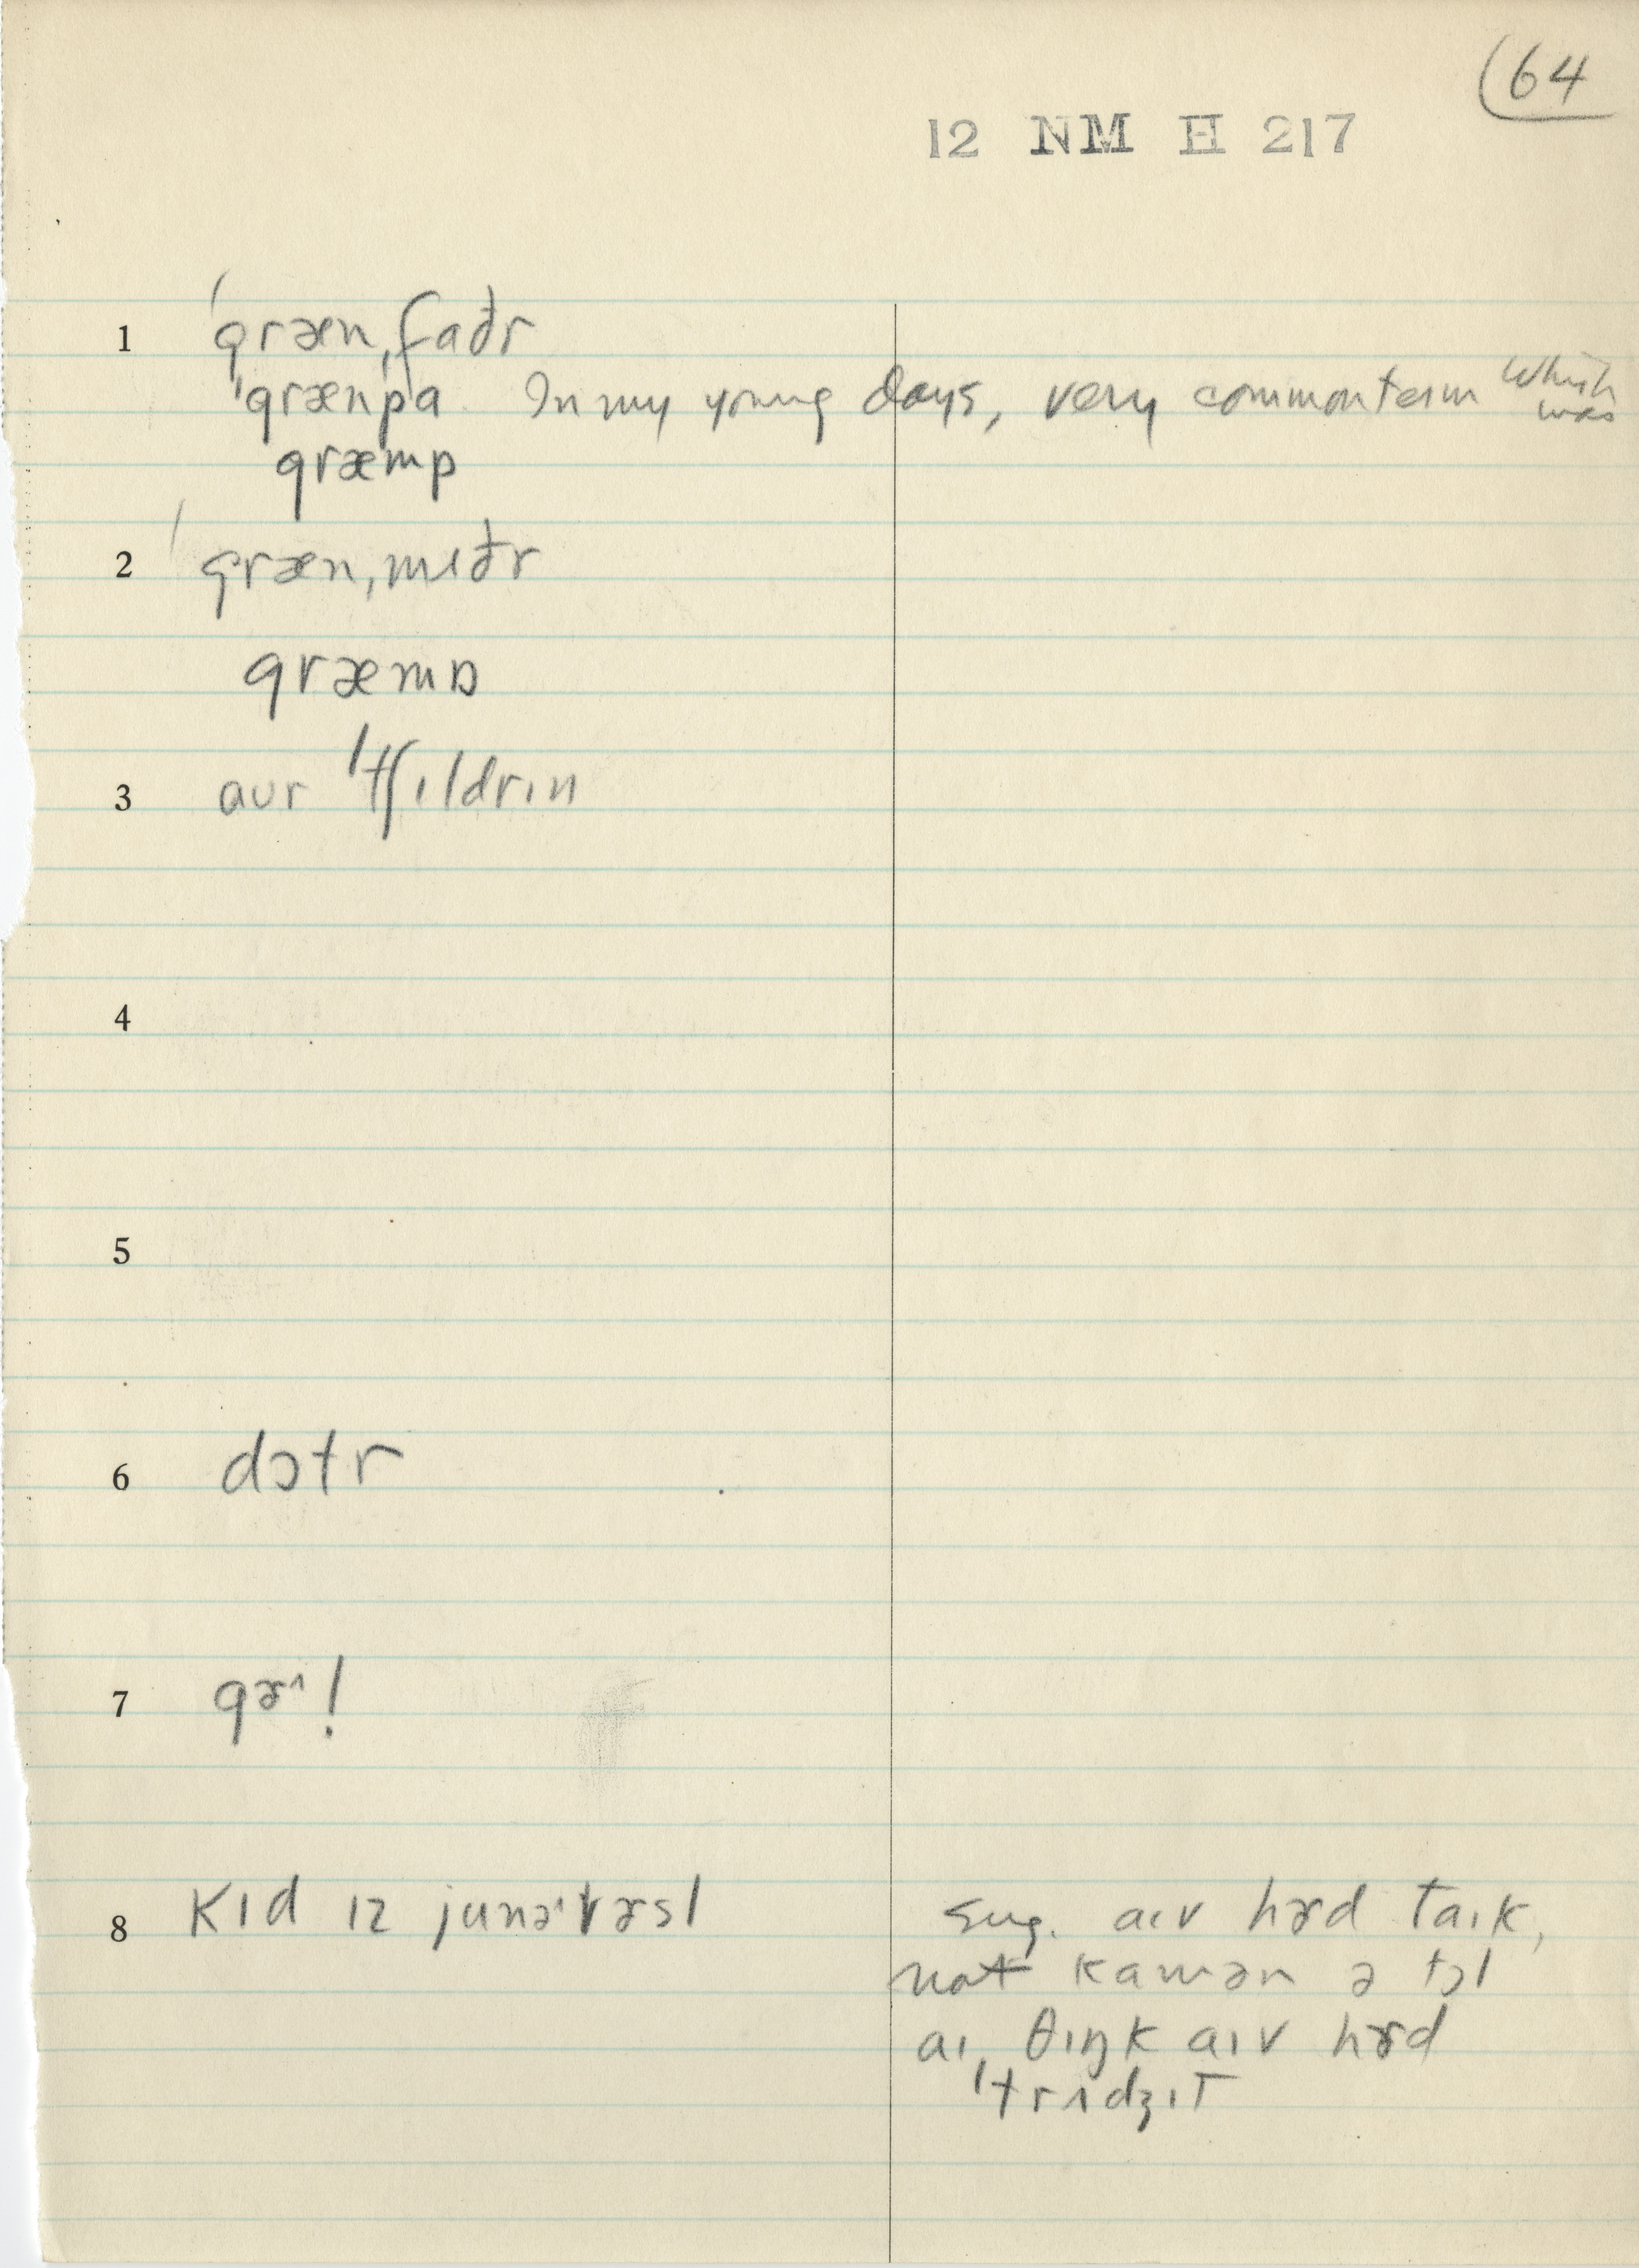 64
12 NM H 217
1 ˈgrænˌfaðr
ˈgrænˌpa In my young days, very common term which was
græmp
2 ˈgrænˌmʌðr
græmɒ
3 aʊr ˈtʃɪldrɪn
4
5
6 dɔtr
7 gɚˑl
8 kɪd ɪz junəˈvɚsl sug. aɪv hɚd taɪk,
not kamən ə tɔl
aɪ θɪŋk aɪv hɚd